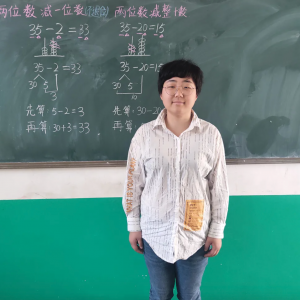 两位数减一位数(不退位) 两位数减整十数
35-2=33 35-20=15
35-2=33 35-20=15
30 5 30 5
3 10
先算:5-2=3 先算:30-20
再算:30+3=33 再算